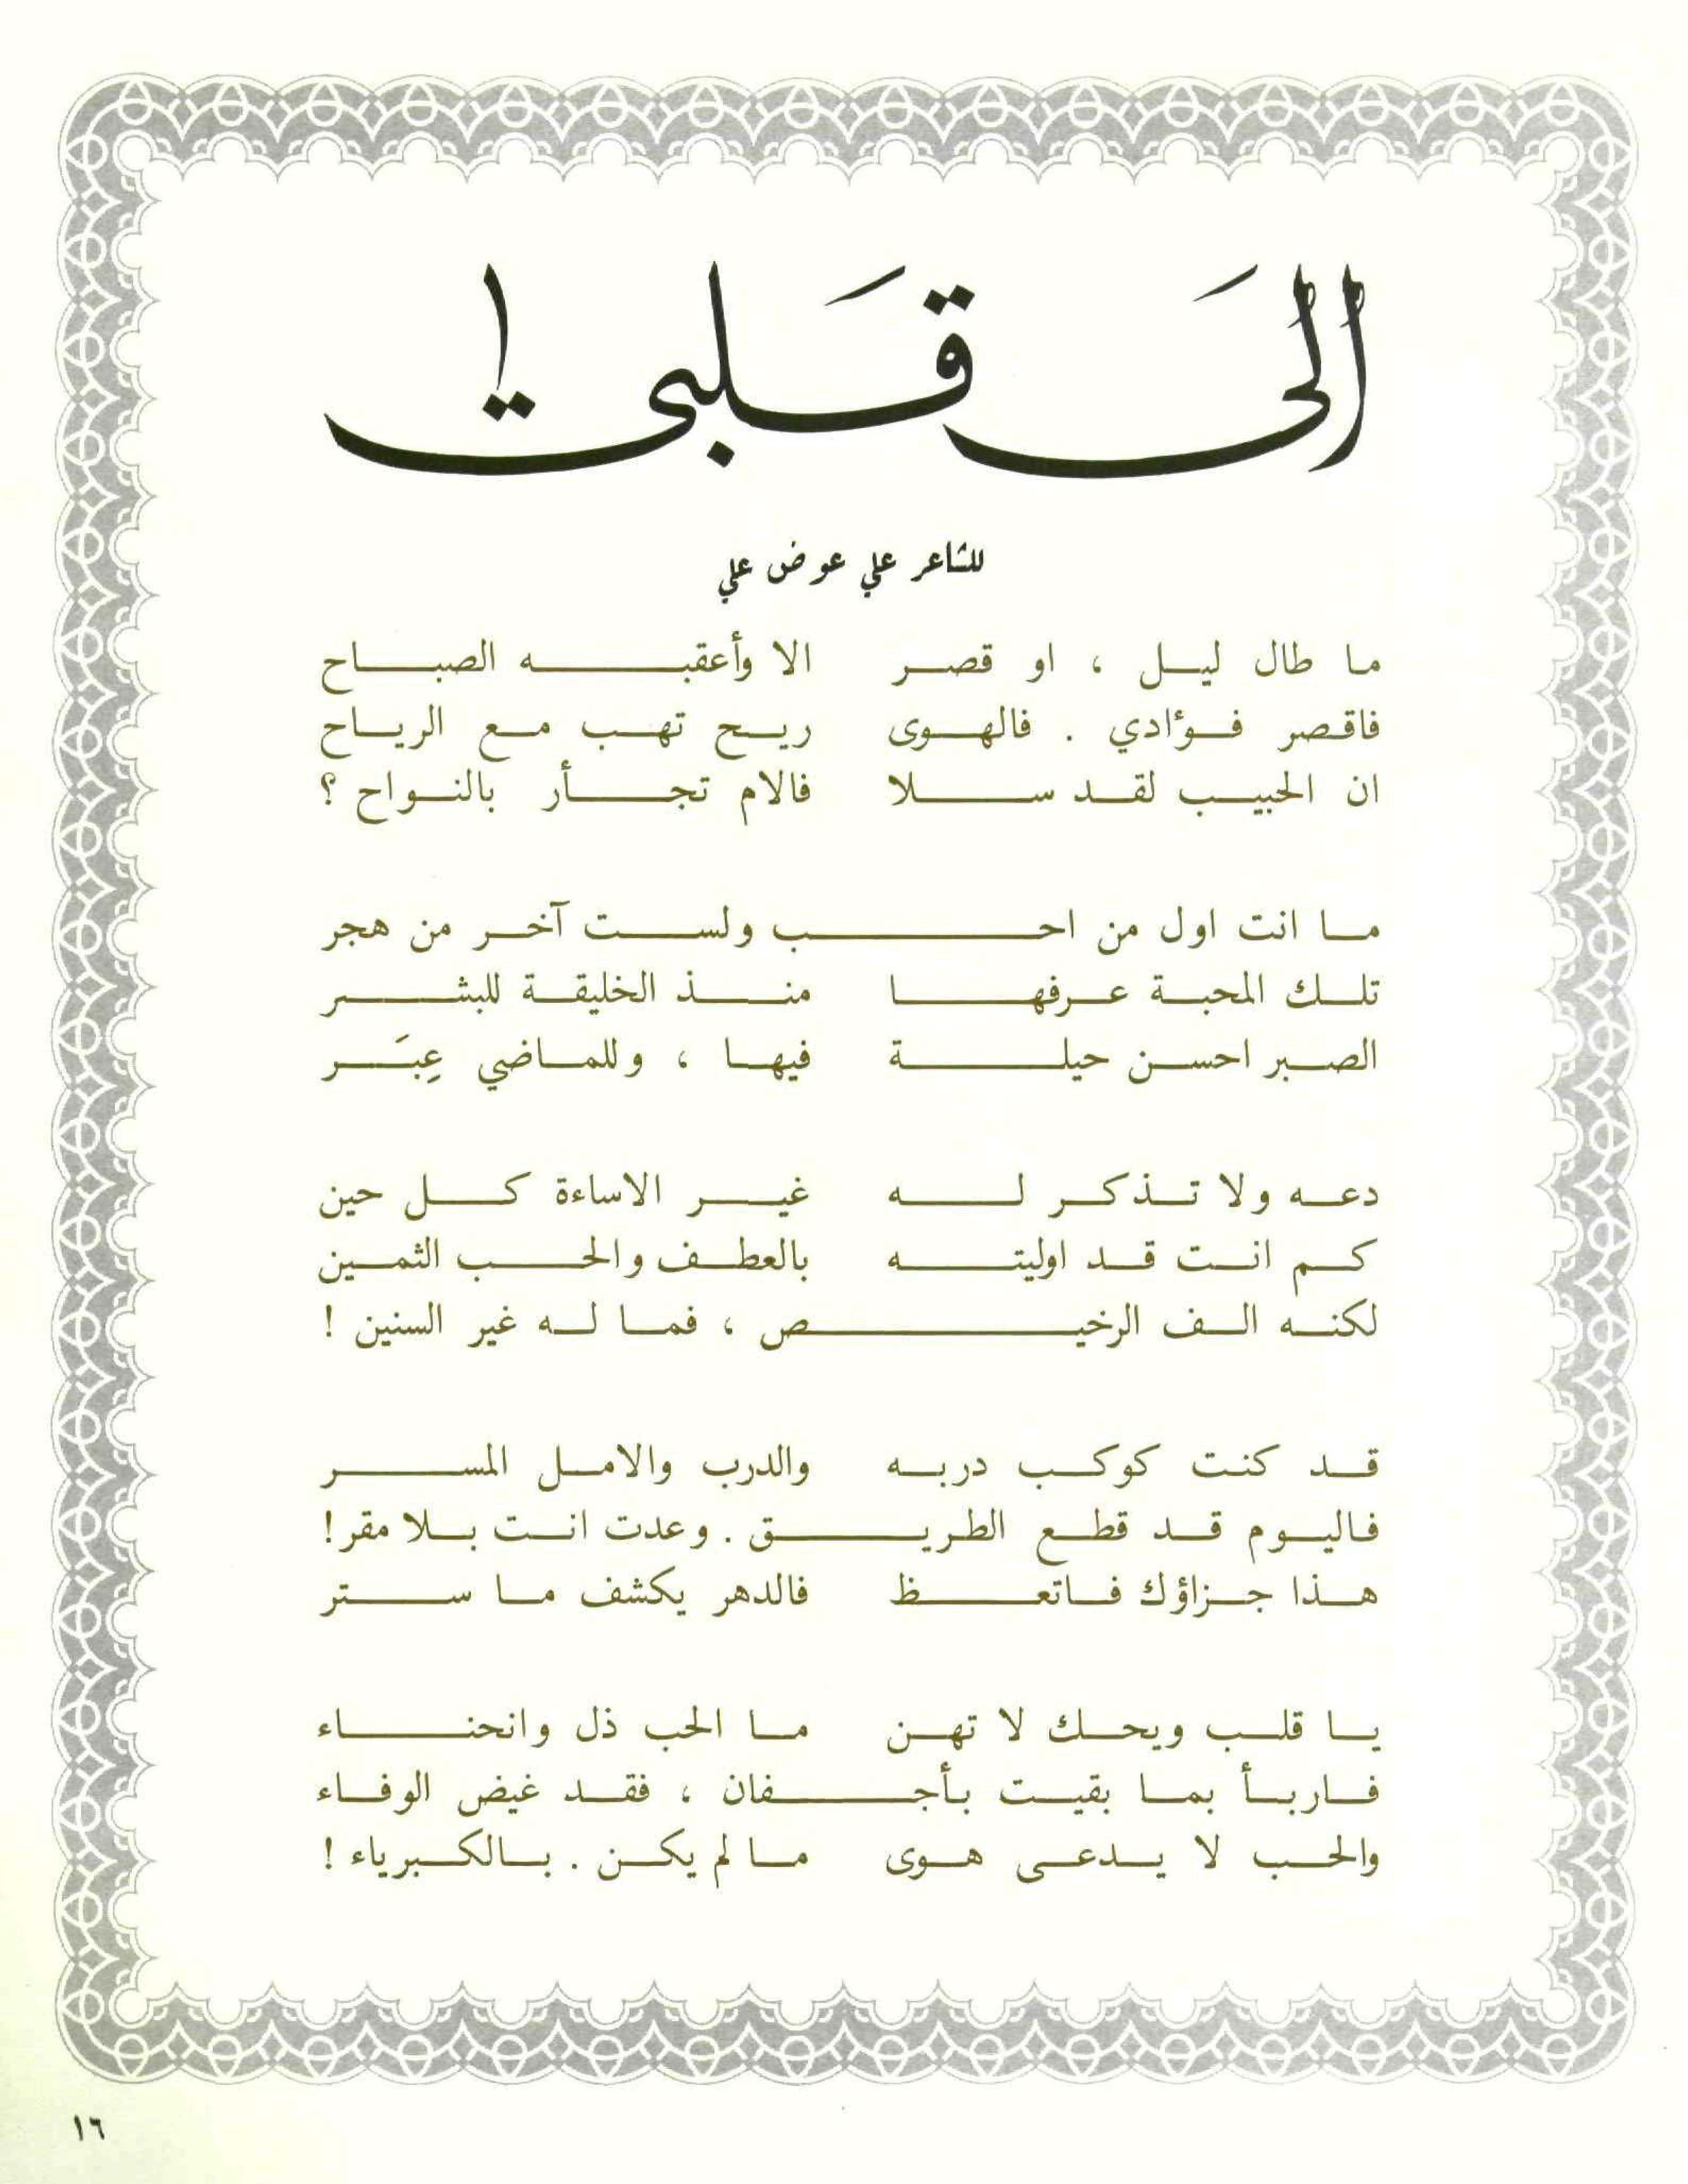 إلىَ قَلبي !
للشاعر علي عوض علي
ما طال ليل ، او قصر الا وأعقبه الصباح
فاقصر فؤادي . فالهوى ريح تهب مع الرياح
ان الحبيب لقد سلا فالام تجأر بالنواح ؟
ما انت اول من احب ولست آخر من هجر
تلك المحبة عرفها منذ الخليقة للبشر
الصبر احسن حيلة فيها ، وللماضي عِبَر
دعه ولا تذكر له غير الاساءة كل حين
كم انت قد اوليته بالعطف والحب الثمين
لكنه الف الرخيص ، فما له غير السنين !
قد كنت كوكب دربه والدرب والامل المسر
فاليوم قد قطع الطريق . وعدت انت بلا مقر !
هذا جزاؤك فاتعظ فالدهر يكشف ما ستر
يا قلب ويحك لا تهن ما الحب ذل وانحناء
فاربأ بما بقيت بأجفان ، فقد غيض الوفاء
والحب لا يدعى هوى ما لم يكن . بالكبرياء !
١٦